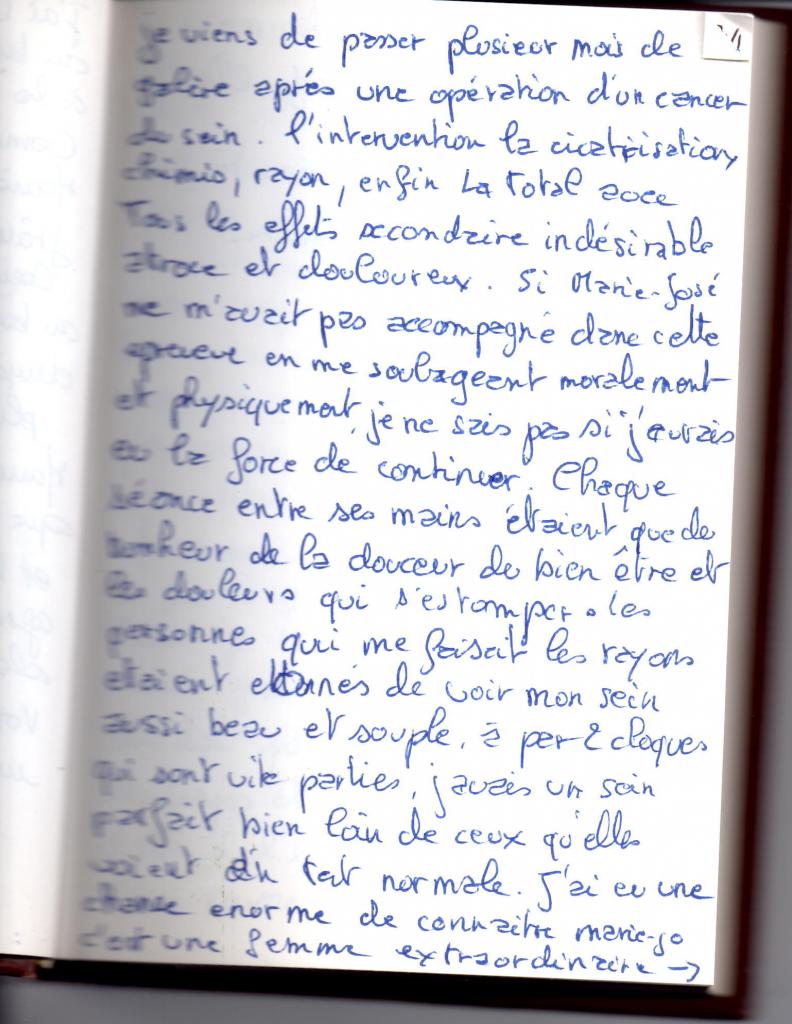 je viens de passer plusieur mois de
galère après une opération d'un cancer
du sein. l'intervention la cicatrisation,
chimio, rayon, enfin La total avec
Tous les effets secondaire indésirable
atroce et douloureux. Si Marie-José
ne m'avait pas accompagné dans cette
epreuve en me soulageant moralement
et physiquement, je ne sais pas si j'aurais
eu la force de continuer. Chaque
séance entre ses mains étaient que de
bonheur de la douceur du bien être et
les douleurs qui s'estomper. les
personnes qui me faisait les rayons
etaient etonnés de voir mon sein
aussi beau et souple, à par 2 cloques
qui sont vite parties, j'avais un sein
parfait bien loin de ceux qu'elles
voient d'un tait normale. J'ai eu une
chance enorme de connaitre marie-jo
c'est une femme extraordinaire →